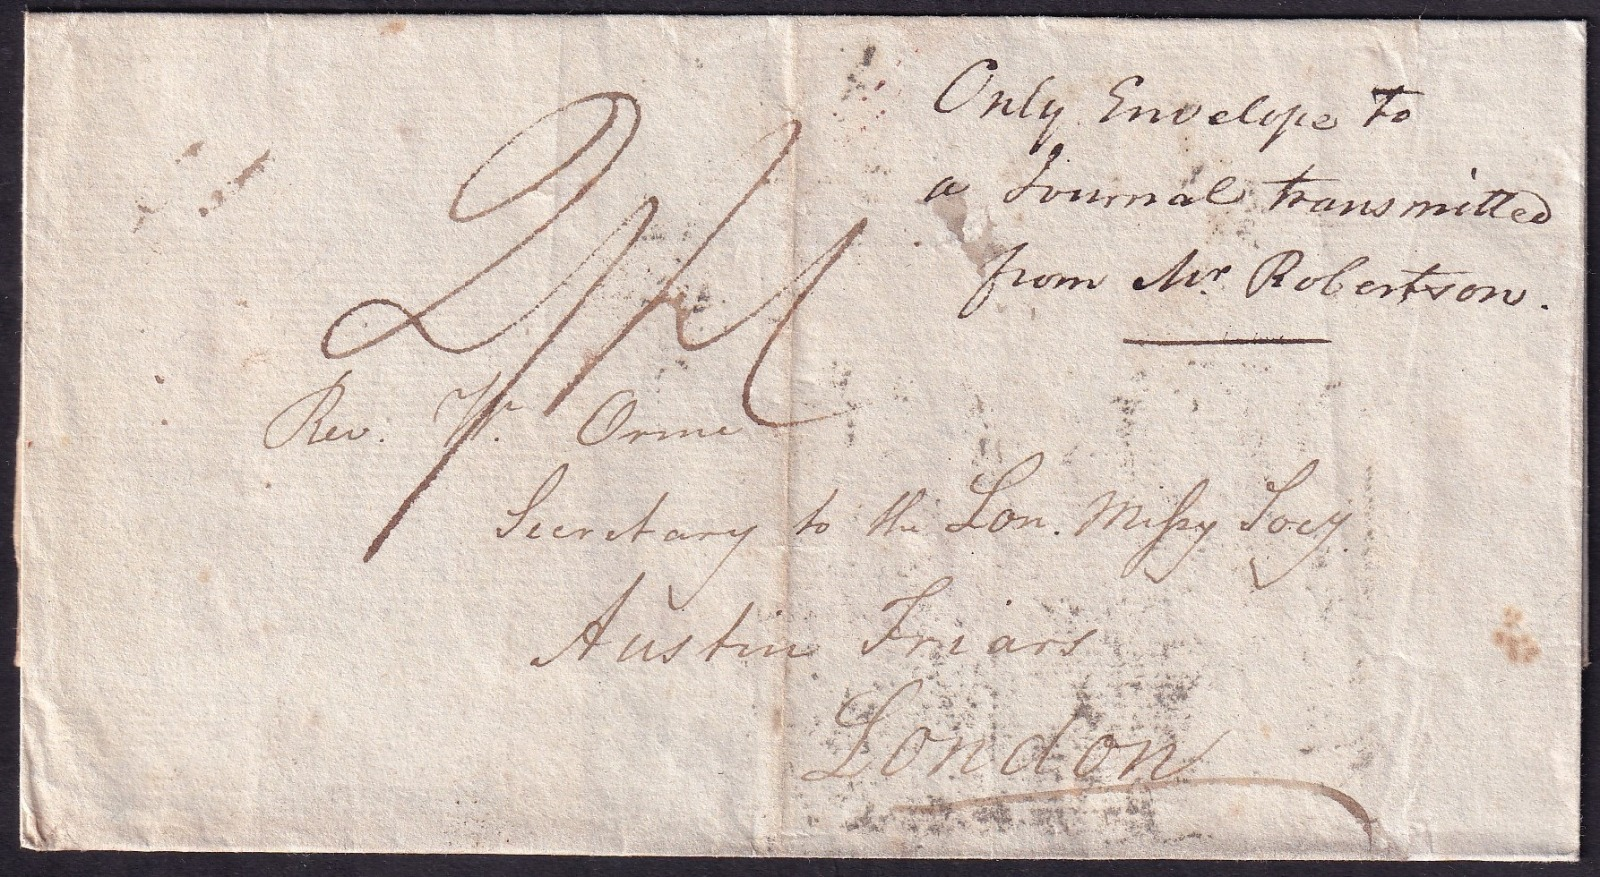 Only Envelope to
a Journal transmitted
from Mr. Robertson.
Rev. W. Orme
Secretary to the Lon. Missy Socy
Austin Friars
London